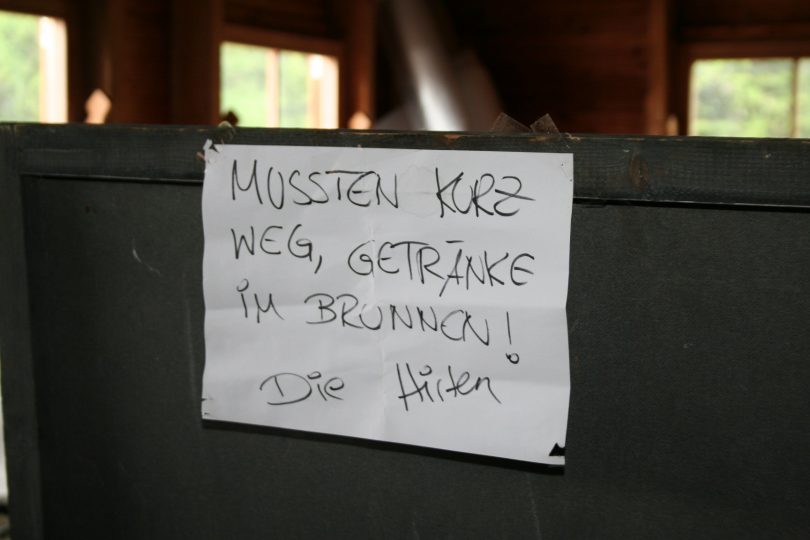 MUSSTEN KURZ
WEG, GETRÄNKE
IM BRUNNEN!
Die Hirten